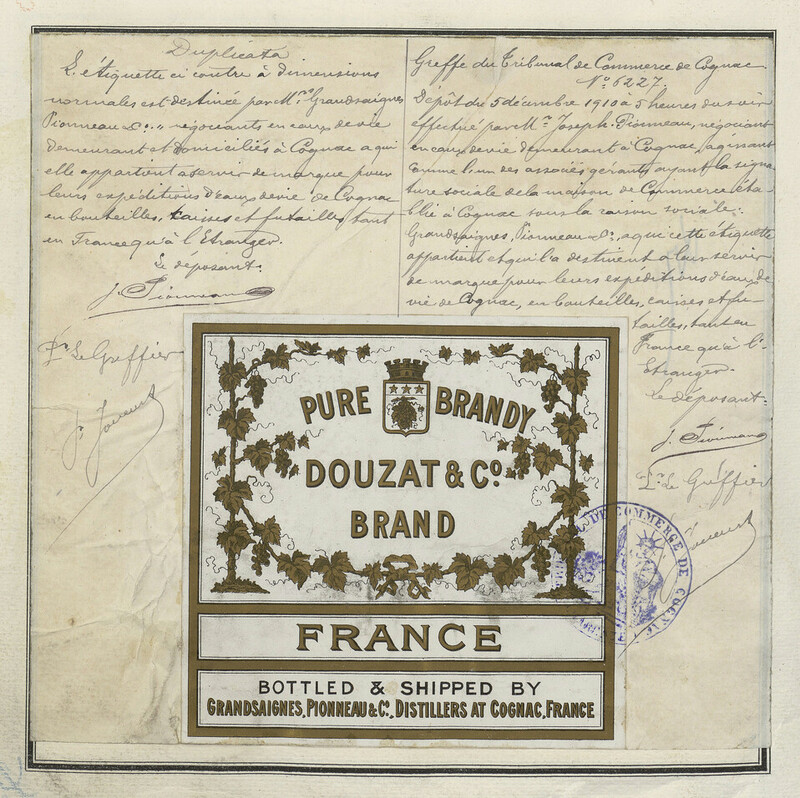 Duplicata
L'étiquette ci contre à dimensions
normales est destinée par M.rs Grandsaignes
Pionneau & Co. négociants en eaux de vie
demeurant et domiciliés à Cognac a qui
elle appartient a servir de marque pour
leurs expéditions d'eaux de vie de Cognac
en bouteilles, caisses et futailles, tant
en France qu'à l'Etranger.
Le déposant.
J. Pionneau
Pr. Le Greffier
Greffe du Tribunal de Commerce de Cognac.
No 6227.
Dépôt du 5 décembre 1910 à 5 heures du soir
effectué par Mr. Joseph Pionneau, négociant
en eaux de vie demeurant à Cognac, agissant
comme l'un des associés gérants ayant la signa-
ture sociale de la maison de Commerce éta-
blie à Cognac sous la raison sociale:
Grandsaignes, Pionneau & Co, a qui cette étiquette
appartient et qui l'a destinent a leur servir
de marque pour leurs expéditions d'eaux de
vie de Cognac, en bouteilles, caisses et fu-
tailles, tant en
France qu'à l'-
Etranger.
Le déposant.
J. Pionneau
Pr. Le Greffier
PURE BRANDY
DOUZAT & Co.
BRAND
FRANCE
BOTTLED & SHIPPED BY
GRANDSAIGNES, PIONNEAU & Co. DISTILLERS AT COGNAC, FRANCE
DE COMMERCE DE COGNAC